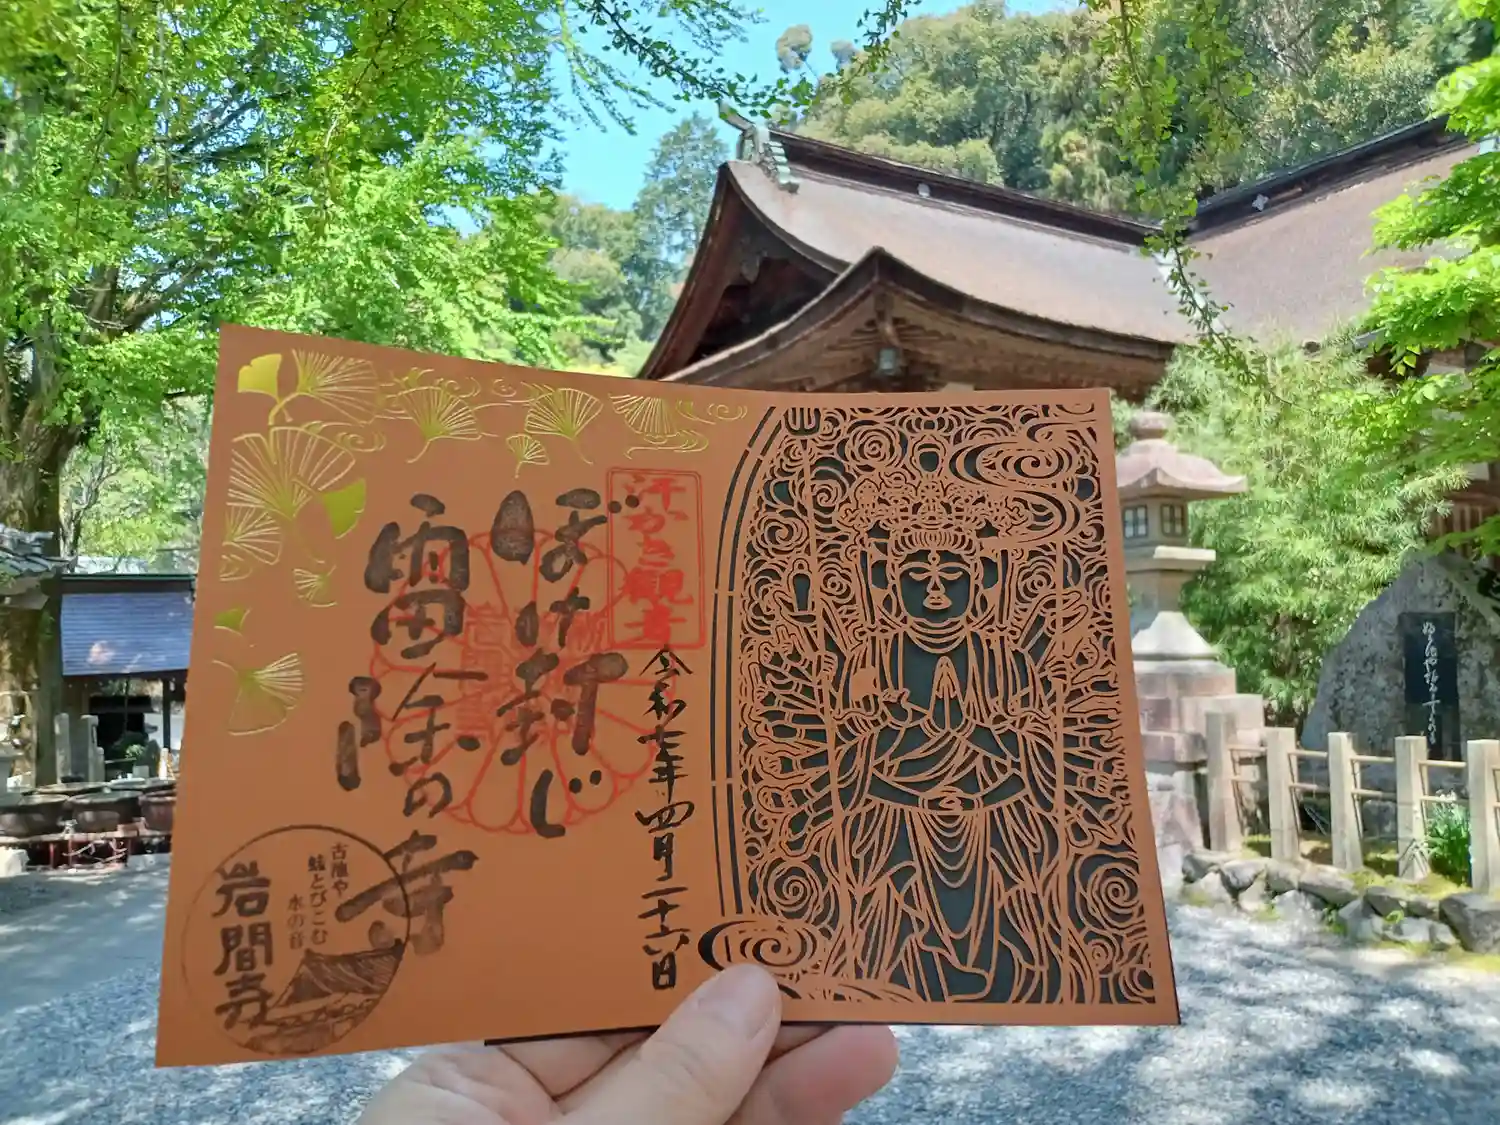 汗かき観音
令和七年四月二十六日
ぼけ封じ
雷除の寺
古池や
蛙とびこむ
水の音
岩間寺